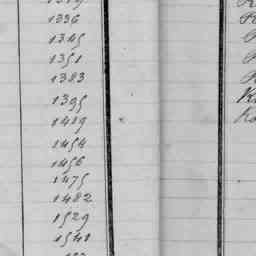 1336
1345
1351
1383
1395
1419
1454
1456
1475
1482
1529
1541